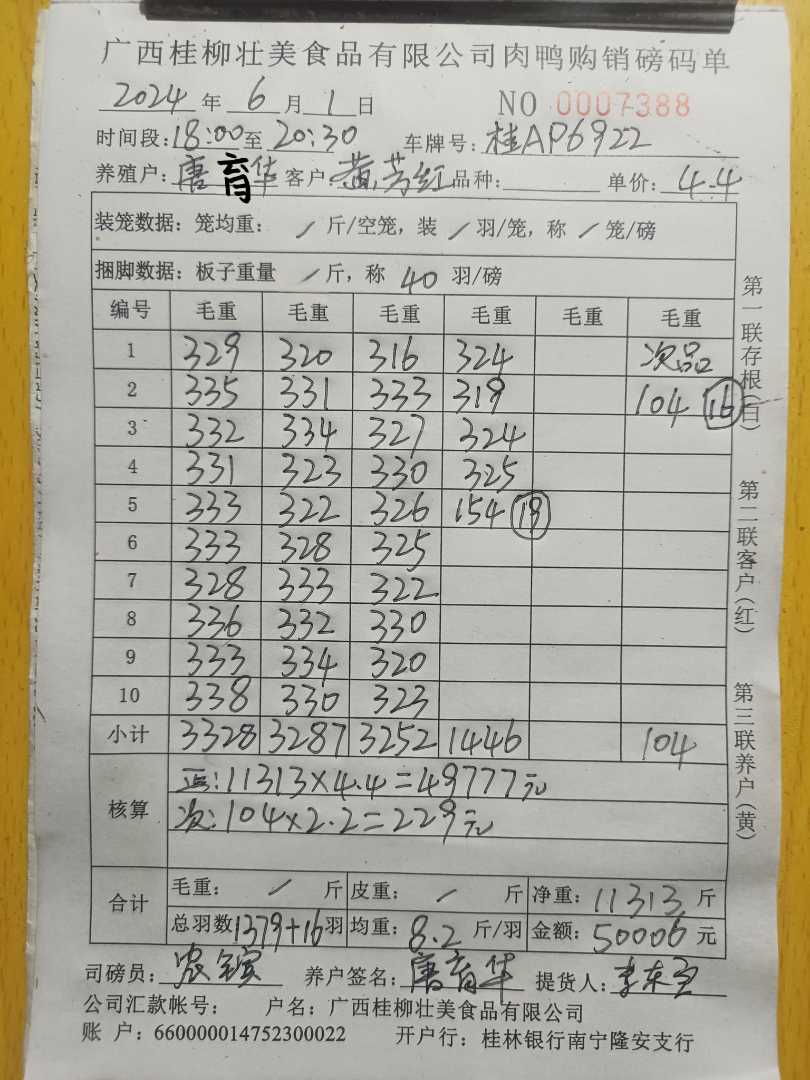 广西桂柳壮美食品有限公司肉鸭购销磅码单
2024 年 6 月 1 日 NO 0007388
时间段：18:00至 20:30 车牌号：桂AP6922
养殖户：唐育华 客户：黄芳红 品种： 单价：4.4
装笼数据：笼均重： / 斤/空笼，装 / 羽/笼，称 / 笼/磅
捆脚数据：板子重量 / 斤，称 40 羽/磅
编号 毛重 毛重 毛重 毛重 毛重 毛重
1 329 320 316 324 次品
2 335 331 333 319 104 16
3 332 334 327 324
4 331 323 330 325
5 333 322 326 154 19
6 333 328 325
7 328 333 322
8 336 332 330
9 333 334 320
10 338 330 323
小计 3328 3287 3252 1446 104
核算
正：11313×4.4=49777元
次：104×2.2=229元
合计
毛重： / 斤 皮重： / 斤 净重：11313斤
总羽数1379+16羽 均重：8.2 斤/羽 金额：50006 元
司磅员： 养户签名：唐育华 提货人：李东
公司汇款帐号： 户名：广西桂柳壮美食品有限公司
账 户：660000014752300022 开户行：桂林银行南宁隆安支行
第一联存根(白)
第二联客户(红)
第三联养户(黄)